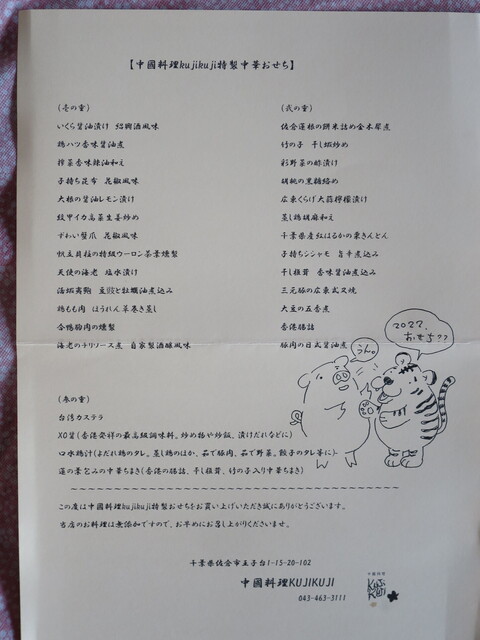 【中國料理kujikuji特製中華おせち】
(壱の重)
いくら醤油漬け 紹興酒風味
鶏ハツ香味醤油煮
搾菜香味辣油和え
子持ち昆布 花椒風味
大根の醤油レモン漬け
紋甲イカ高菜生姜炒め
ずわい蟹爪 花椒風味
帆立貝柱の特級ウーロン茶葉燻製
天使の海老 塩水漬け
活鮑 豆豉と牡蠣油煮込み
鶏もも肉 ほうれん草巻き蒸し
合鴨胸肉の燻製
海老のチリソース煮 自家製酒醸風味
(弐の重)
佐倉蓮根の餅米詰め金木犀煮
竹の子 干し蝦炒め
彩野菜の酢漬け
胡桃の黒糖絡め
広東くらげ大蒜檸檬漬け
蒸し鶏胡麻和え
千葉県産紅はるかの栗きんとん
子持ちシシャモ 旨辛煮込み
干し椎茸 香味醤油煮込み
三元豚の広東式叉焼
大豆の五香煮
香港腸詰
豚肉の日式醤油煮
うん。
2022.
おもち??
(参の重)
台湾カステラ
XO醤(香港発祥の最高級調味料。炒め物や炒飯、漬けだれなどに)
口水鶏汁(よだれ鶏のタレ。蒸し鶏のほか、茹で豚肉、茹で野菜。餃子のタレ等に)
蓮の葉包みの中華ちまき(香港の腸詰、干し椎茸、竹の子入り中華ちまき)
この度は中國料理kujikuji特製おせちをお買い上げいただき誠にありがとうございます。
当店のお料理は無添加ですので、お早めにお召し上がりくださいませ。
千葉県佐倉市王子台1-15-20-102
中國料理KUJIKUJI
043-463-3111